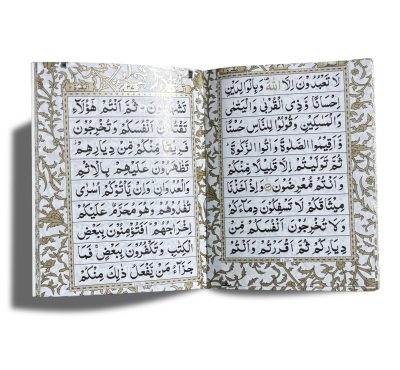 لَا تَعْبُدُوْنَ اِلَّا اللّٰهَ وَبِالْوَالِدَيْنِ
اِحْسَانًا وَّذِى الْقُرْبٰى وَالْيَتٰمٰى
وَالْمَسٰكِيْنِ وَقُوْلُوْا لِلنَّاسِ حُسْنًا
وَّاَقِيْمُوا الصَّلٰوةَ وَاٰتُوا الزَّكٰوةَ ؕ
ثُمَّ تَوَلَّيْتُمْ اِلَّا قَلِيْلًا مِّنْكُمْ
وَاَنْتُمْ مُّعْرِضُوْنَ وَاِذْ اَخَذْنَا
مِيْثَاقَكُمْ لَا تَسْفِكُوْنَ دِمَآءَكُمْ
وَلَا تُخْرِجُوْنَ اَنْفُسَكُمْ مِّنْ
دِيَارِكُمْ ثُمَّ اَقْرَرْتُمْ وَاَنْتُمْ
تَشْهَدُوْنَ ثُمَّ اَنْتُمْ هٰٓؤُلَآءِ
تَقْتُلُوْنَ اَنْفُسَكُمْ وَتُخْرِجُوْنَ
فَرِيْقًا مِّنْكُمْ مِّنْ دِيَارِهِمْ
تَظٰهَرُوْنَ عَلَيْهِمْ بِالْاِثْمِ
وَالْعُدْوَانِ وَاِنْ يَّاْتُوْكُمْ اُسٰرٰى
تُفٰدُوْهُمْ وَهُوَ مُحَرَّمٌ عَلَيْكُمْ
اِخْرَاجُهُمْ اَفَتُؤْمِنُوْنَ بِبَعْضِ
الْكِتٰبِ وَتَكْفُرُوْنَ بِبَعْضٍ فَمَا
جَزَآءُ مَنْ يَّفْعَلُ ذٰلِكَ مِنْكُمْ